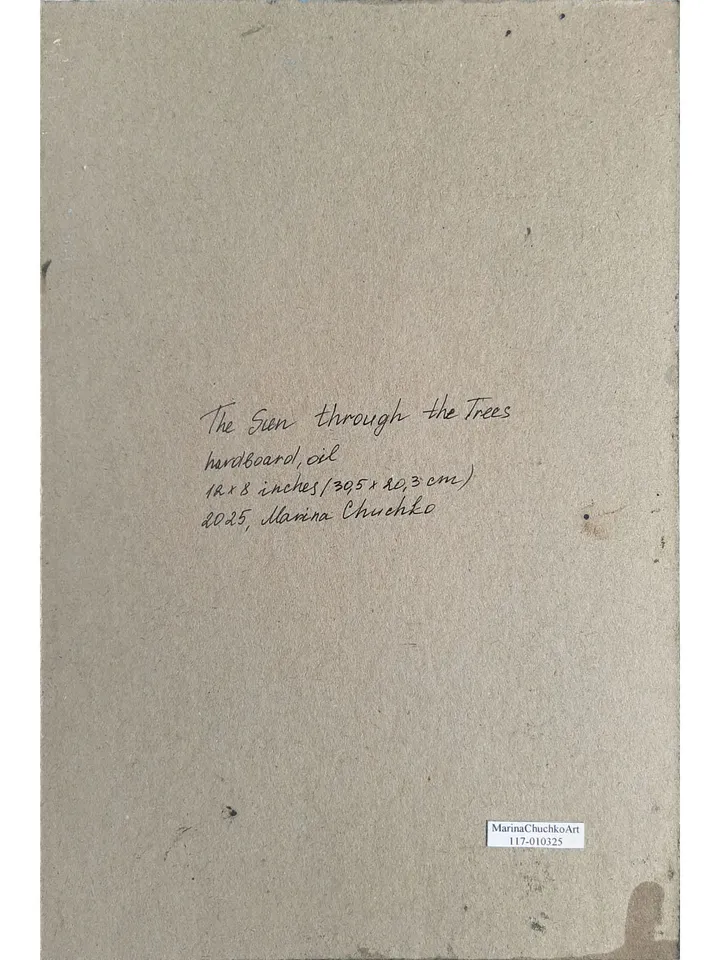 The Sun through the Trees
hardboard, oil
12x8 inches (30,5 x 20,3 cm)
2025, Marina Chuchko
MarinaChuchkoArt
117-010325